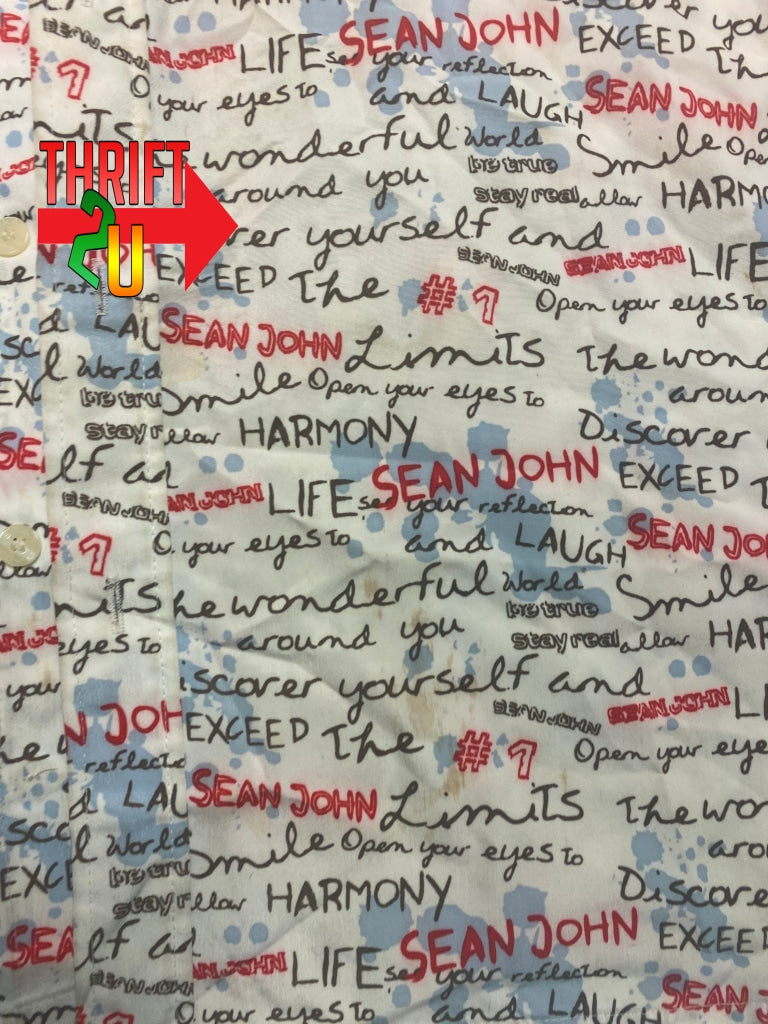 SEAN JOHN
LIFE see your reflection
EXCEED
your eyes to
and LAUGH
SEAN JOHN
THRIFT
2
U
wonderful World
be true
Smile
around you
stay real allow HARMO
yourself and
SEAN JOHN
SEAN JOHN LIFE
EXCEED The # 1
Open your eyes To
SEAN JOHN Limits
The wond
World
Smile Open your eyes To
aroun
HARMONY
Discover
SEAN JOHN EXCEED
SEAN JOHN LIFE see your reflection
1
your eyes To
and LAUGH SEAN JO
he wonderful World
be true
Smile
eyes To
around you
stay real allow HAR
iscover yourself and
SEAN JOHN
SEAN JOHN LI
N JOH
EXCEED The # 1
Open your eye
reflecti
LAU
SEAN JOHN Limits
The wo
World
Smile Open your eyes To
aro
HARMONY
Discove
SEAN JOHN EXCEED
LIFE see your reflection
SEAN JOHN
your eyes To
and LAUGH